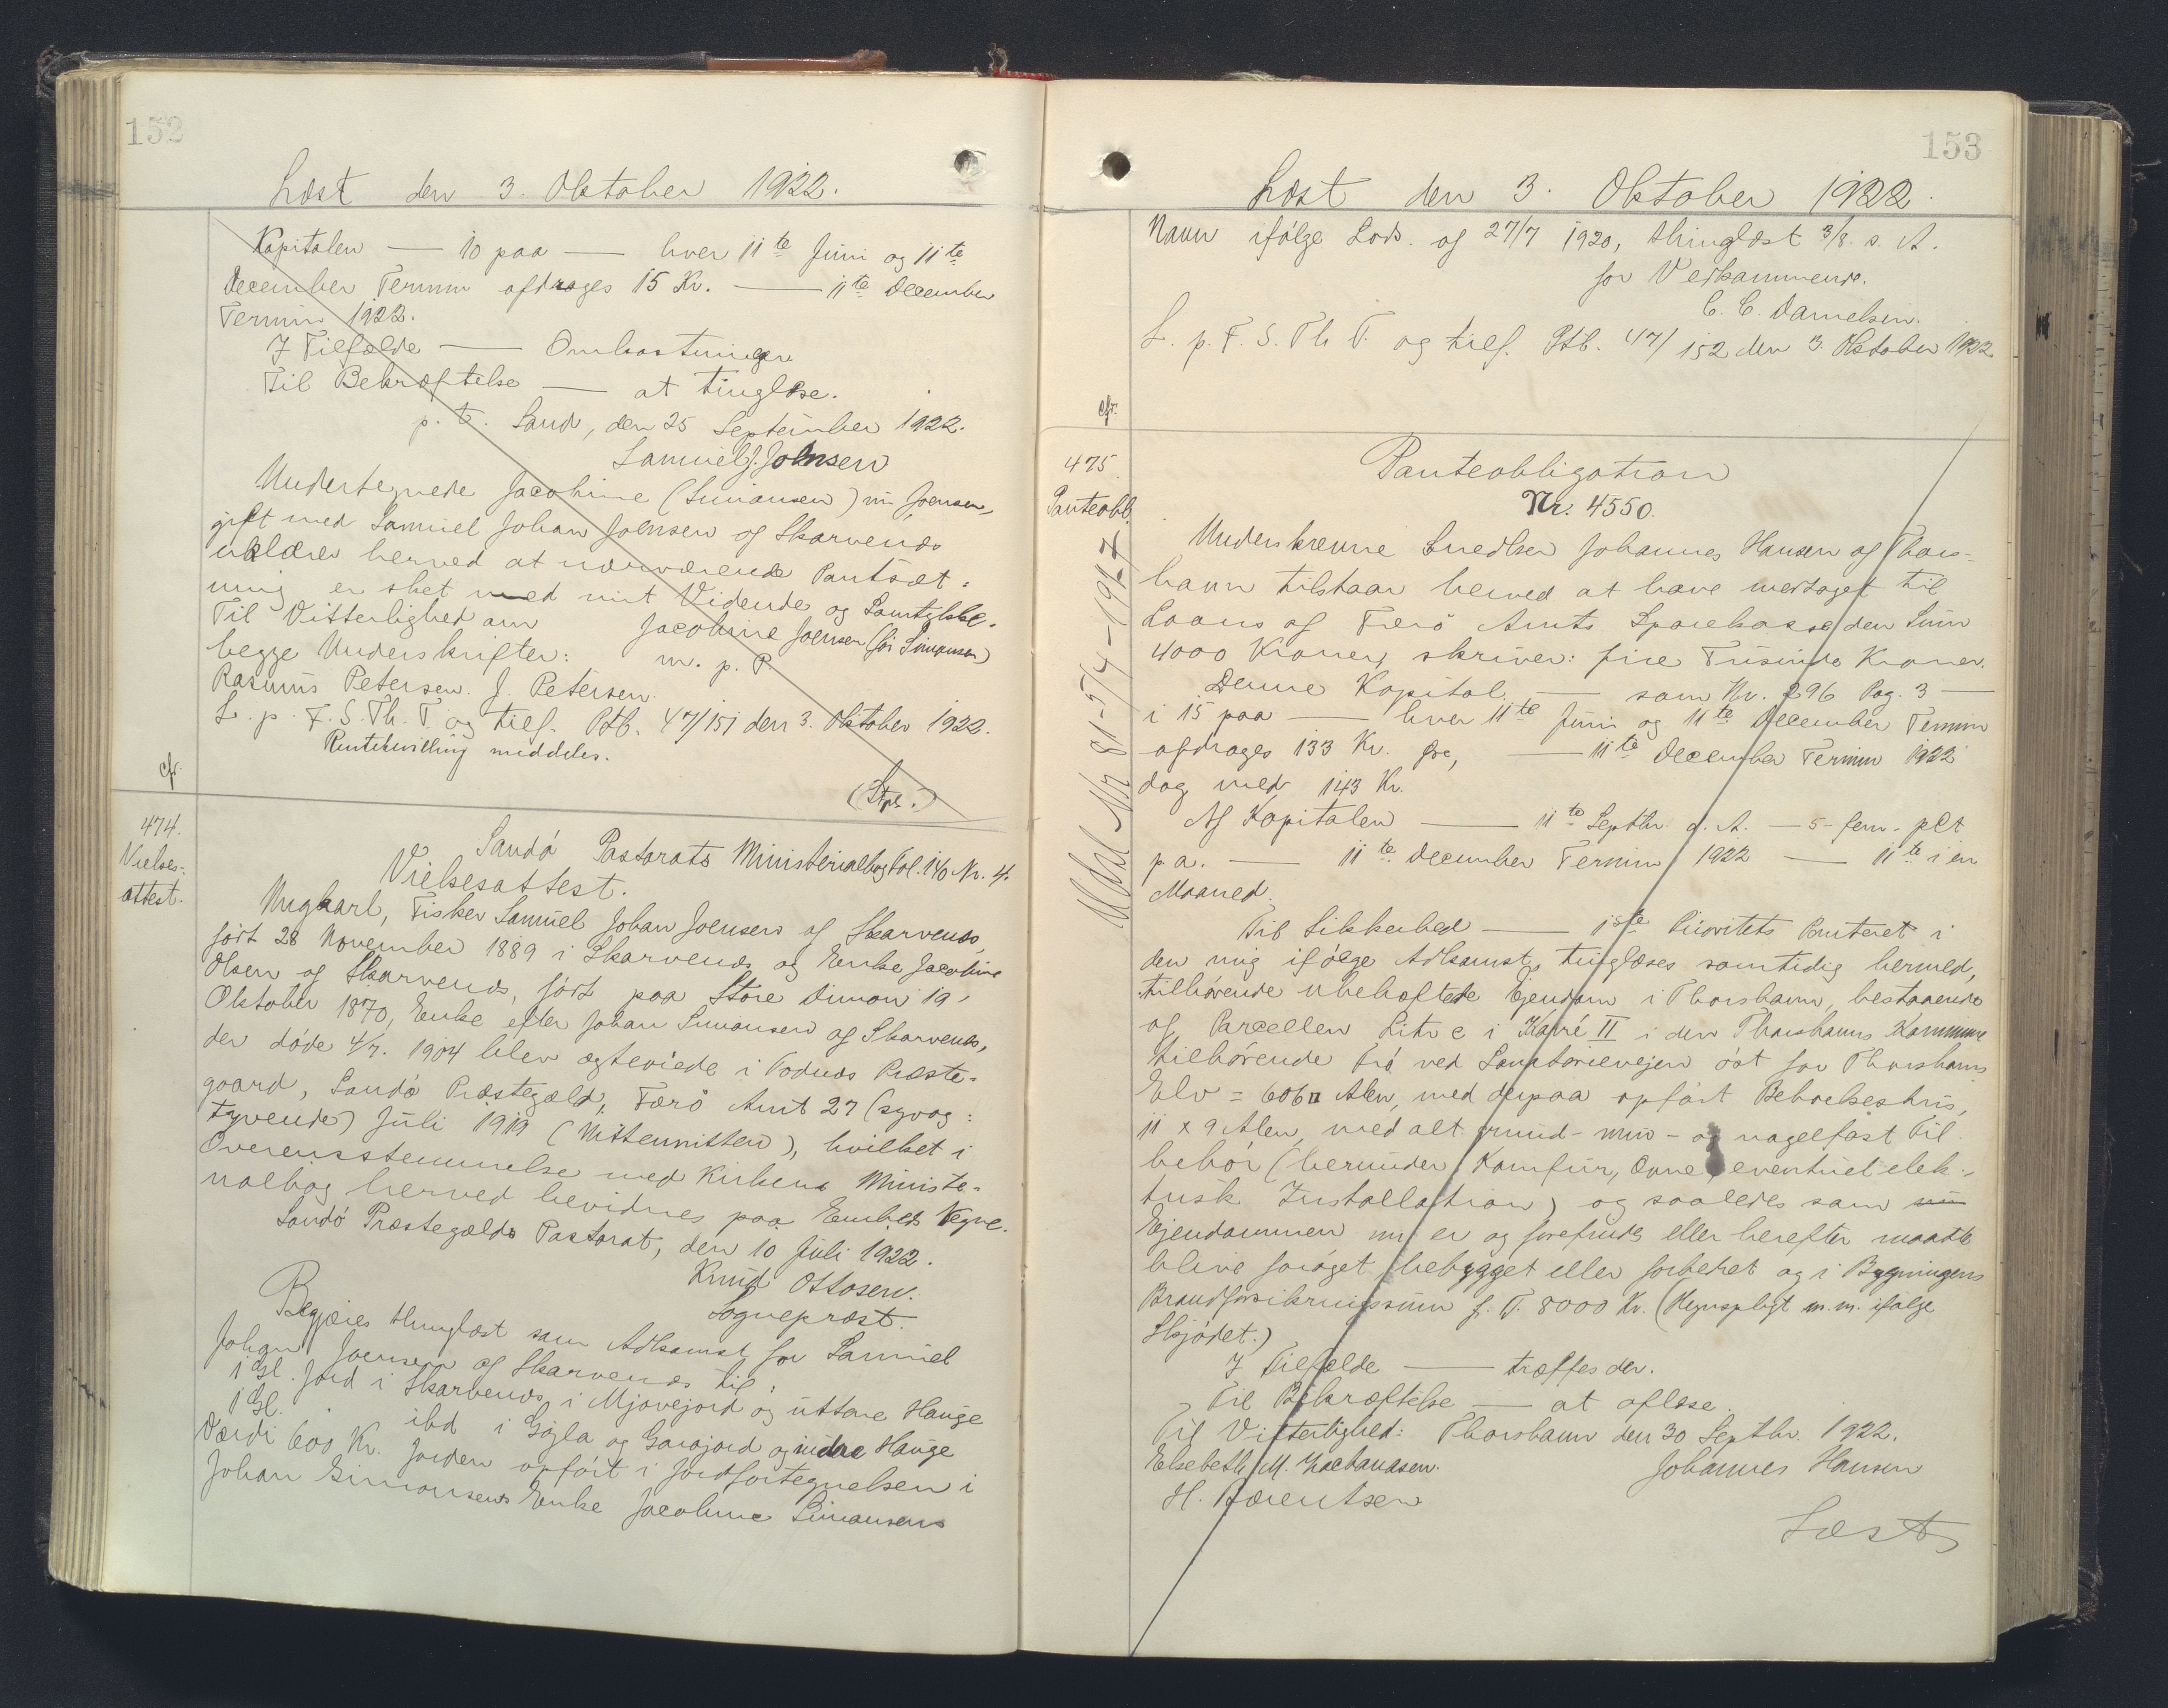 152
Læst den 3. Oktober 1922.
Kapitalen — 10 paa — hver 11te Juni og 11te
December Termin afdrages 15 Kr. — 11te December
Termin 1922.
I Tilfælde — Omkostninger
Til Bekræftelse — at tinglæse.
p. t. Sand, den 25 September 1922.
Samuel J. Joensen
Undertegnede Jacobine (Simonsen) nu Joensen,
gift med Samuel Johan Joensen af Skarvenæs
erklærer herved at nærværende Pantsæt-
ning er sket med mit Vidende og Samtykke.
Til Vitterlighed om Jacobine Joensen (før Simonsen)
begge Underskrifter: m. p. P.
Rasmus Petersen. J. Petersen.
L. p. F. S. Th. T. og tilf. Ptb. 47/151 den 3. Oktober 1922.
Rentebevilling meddeles.
cfr.
(Stpl.)
474.
Vielses-
attest.
Sandø Pastorats Ministerialbog Fol. 140 Nr. 4.
Vielsesattest.
Ungkarl, Fisker Samuel Johan Joensen af Skarvenæs,
født 28 November 1889 i Skarvenæs og Enke Jacobine
Olsen af Skarvenæs, født paa Store Dimon 19
Oktober 1870, Enke efter Johan Simonsen af Skarvenæs,
der døde 4/7. 1904 blev ægteviede i Todnæs Præste-
gaard, Sandø Præstegæld, Færø Amt 27 (syvog-
tyvende) Juli 1919 (Nittennitten), hvilket i
Overensstemmelse med Kirkens Ministe-
rialbog herved bevidnes paa Embeds Vegne.
Sandø Præstegælds Pastorat, den 10 Juli 1922.
Knud Ottosen.
Sognepræst.
Begjæres thinglæst som Adkomst for Samuel
Johan Joensen af Skarvenæs til:
1 Gl. Jord i Skarvenæs i Mjovejord og uttare Hauge
1 Gl. ibd i Gøjla og Garajord og indre Hauge
Værdi 600 Kr. Jorden opført i Jordfortegnelsen i
Johan Simonsens Enke Jacobine Simonsens
153
Læst den 3. Oktober 1922.
Navn ifølge Lods. af 27/7 1920, thinglæst 3/8. s. A.
for Vedkommende.
C. C. Danielsen.
L. p. F. S. Th. T. og tilf. Ptb. 47/152 den 3. Oktober 1922
cfr.
475
Panteobl.
Udsl. Nr 81 - 5/4 - 1927
Panteobligation
Nr. 4550.
Underskrevne Snedker Johannes Hansen af Thors-
havn tilstaar herved at have modtaget til
Laans af Færø Amts Sparekasse den Sum
4000 Kroner, skriver: fire Tusinde Kroner.
Denne Kapital, — som Nr. 296 Pag. 3 —
i 15 paa — hver 11te Juni og 11te December Termin
afdrages 133 Kr. Øre, — 11te December Termin 1922
dog med 143 Kr.
Af Kapitalen — 11te Septbr. d. A. — 5 - fem - pCt
p. a. — 11te December Termin 1922 — 11te i en
Maaned.
Til Sikkerhed — 1ste Prioritets Panteret i
den mig ifølge Adkomst, tinglæses samtidig hermed,
tilhørende ubehæftede Ejendom i Thorshavn, bestaaende
af Parcellen Litr c i Karré II i den Thorshavns Kommune
tilhørende Trø ved Sanatorievejen øst for Thorshavns
Elv = 606 □ Alen, med derpaa opført Beboelseshus,
11 x 9 Alen, med alt grund- mur- og nagelfast Til-
behør (herunder Komfur, Ovne, eventuel elek-
trisk Installation) og saaledes som
Ejendommen nu er og forefindes eller herefter maatte
blive forøget, bebygget eller forbedret og i Bygningens
Brandforsikringssum f. T. 8000 Kr. (Hegnspligt m. m. ifølge
Skjødet.)
I Tilfælde — træffes der.
Til Bekræftelse — at aflæse.
Til Vitterlighed: Thorshavn den 30 Septbr. 1922.
Elsebeth M. Zachariasen. Johannes Hansen
H. Berentsen
Læst